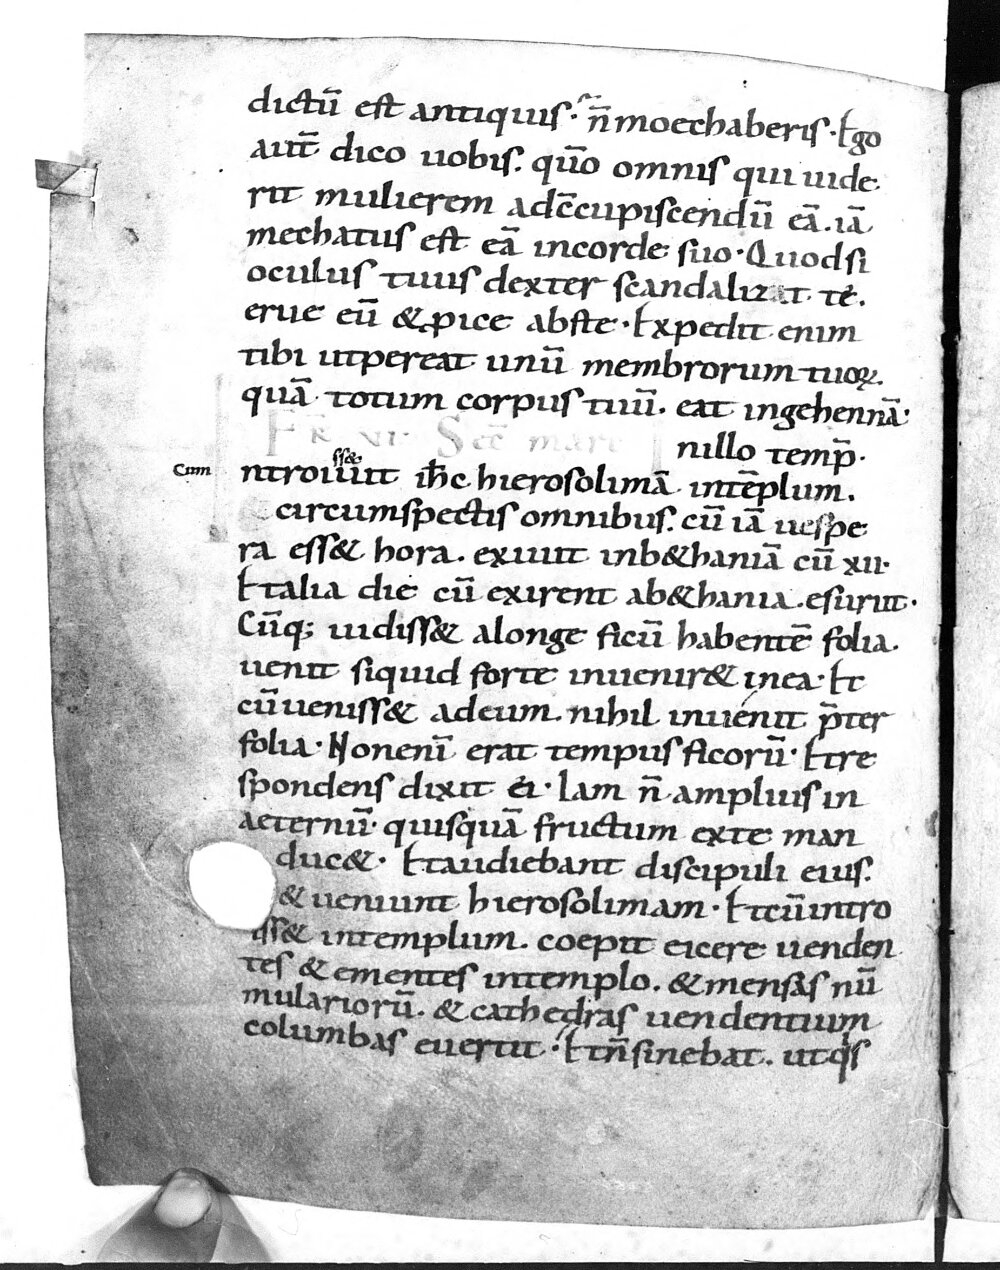 dictū est antiquis. n̄ moechaberis. Ego
aut̄ dico uobis. qūo omnis qui uide
rit mulierem adc̄cupiscendū eā. iā
mechatus est eā incorde suo. Quodsi
oculus tuus dexter scandalizat te.
erue eū & ꝓice abste. Expedit enim
tibi utpereat unū membrorum tuoꝝ.
quā totum corpus tuū. eat ingehennā.
FR VI Sec̄ marc
nillo temp̄.
Cum ntrouit ssæ& ih̄c hierosolimā intēplum.
circumspectis omnibus. cū iā uespe
ra ess& hora. exiuit inb&haniā cū xii.
Et alia die cū exirent ab&hania. esuriit.
Cūq; uidiss& alonge ficū habentē folia.
uenit siquid forte inuenir& inea. Et
cū ueniss& adeum. nihil inuenit p̄ter
folia. Non enī erat tempus ficorū. Et re
spondens dixit ei. Iam n̄ amplius in
aeternū. quisquā fructum exte man
duc&. Et audiebant discipuli eius.
& ueniunt hierosolimam. Et cū intro
iss& intemplum. coepit eicere uenden
tes & ementes intemplo. & mensas nū
mulariorū. & cathedras uendentium
columbas euertit. Et n̄ sinebat. utq̇s